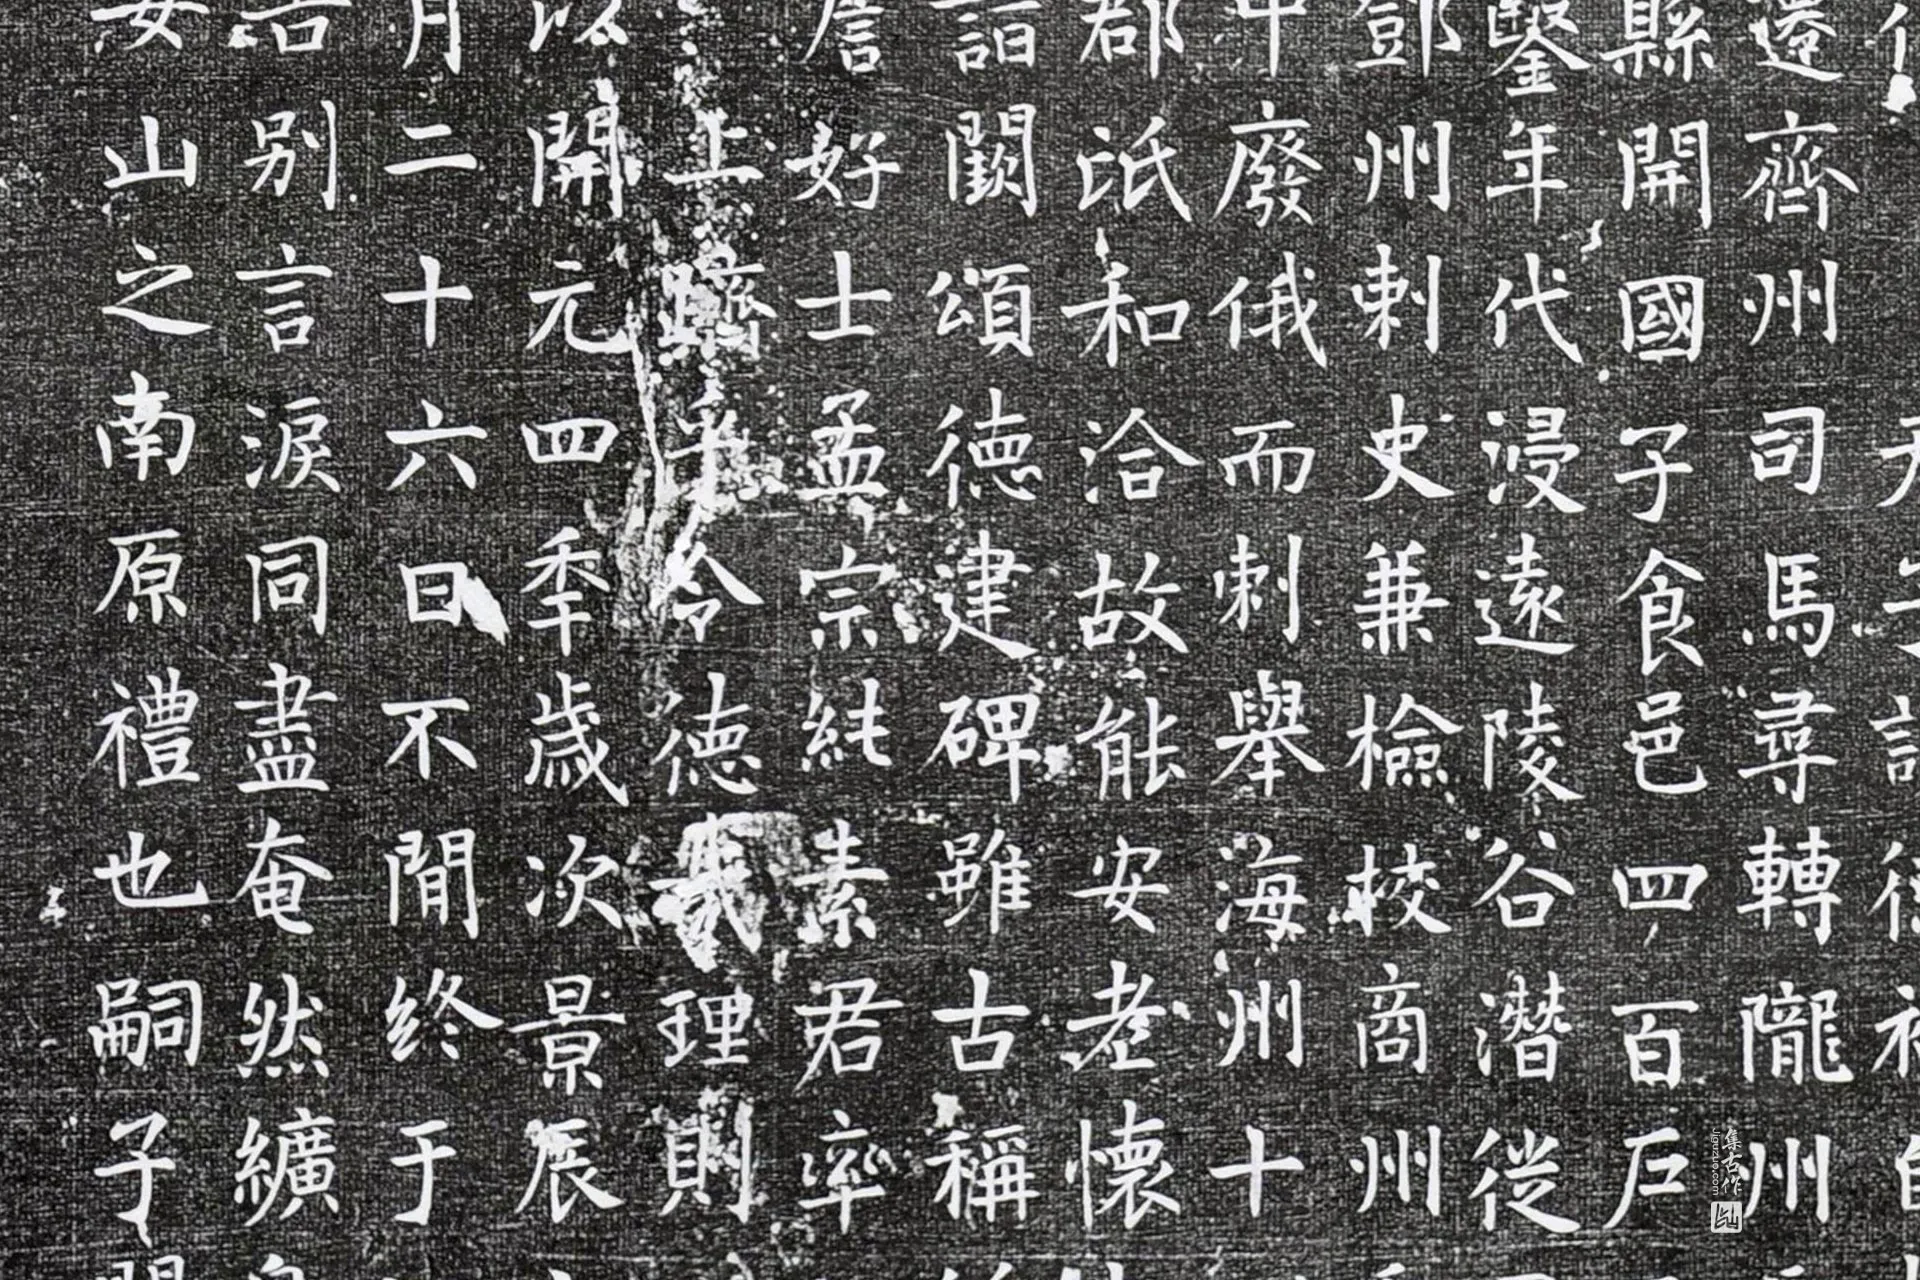 遷齊州司馬尋轉隴州
縣開國子食邑四百戶
年代浸遠陵谷潛從
鄧州刺史兼檢校商州
中廢俄而刺舉海州十
郡祇和洽故能安老懷
詣闕頌德建碑雖古稱
詹好士孟宗純素君率
上躋令德義理則
以開元四秊歲次景辰
月二十六日不閒終于
別言淚同盡奄然纊
安山之南原禮也嗣子
集古作
jiguzuo.com